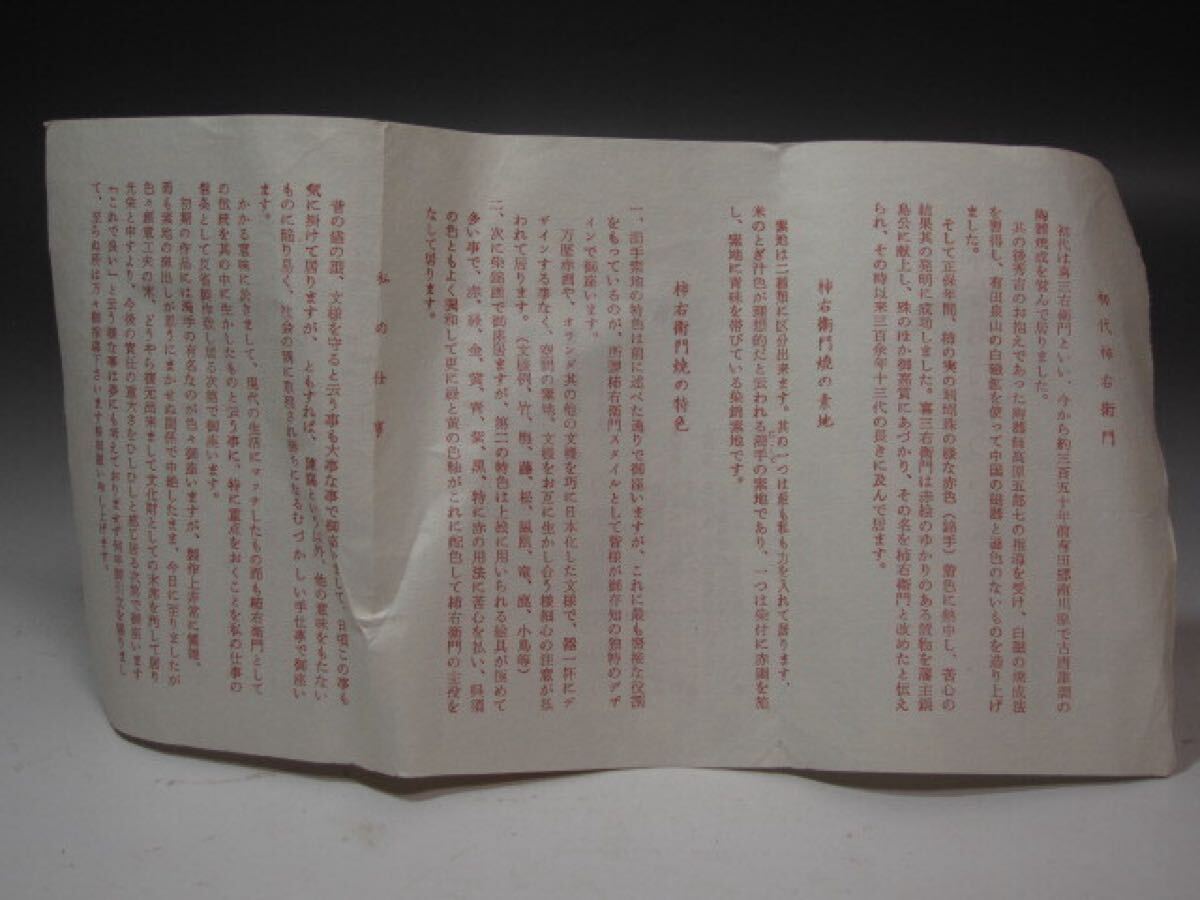 初代柿右衛門
初代は喜三右衛門といい、今から約三百五十年前有田郷南川原で古唐津調の
陶器焼成を営んで居りました。
其の後秀吉のお抱えであった陶器師高原五郎七の指導を受け、白磁の焼成法
を習得し、有田泉山の白磁鉱を使って中国の磁器と遜色のないものを造り上げ
ました。
そして正保年間、柿の実の珊瑚珠の様な赤色(錦手)着色に熱中し、苦心の
結果其の発明に成功しました。喜三右衛門は赤絵のゆかりのある置物を藩主鍋
島公に献上し、殊のほか御嘉賞にあづかり、その名を柿右衛門と改めたと伝え
られ、その時以来三百余年十三代の長きに及んで居ます。
柿右衛門焼の素地
素地は二種類に区分出来ます。其の一つは最も私も力を入れて居ります、
米のとぎ汁色が理想的だと云われる濁手の素地であり、一つは染付に赤園を施
し、素地に青味を帯びている染錦素地です。
柿右衛門焼の特色
一、濁手素地の特色は前に述べた通りで御座いますが、これに最も密接な役割
をもっているのが、所謂柿右衛門スタイルとして皆様が御存知の独特のデザ
インで御座います。
万歴赤画や、オランダ其の他の文様を巧に日本化した文様で、器一杯にデ
ザインする事なく、空間の素地、文様をお互に生かし合う様細心の注意が払
われて居ります。(文様例、竹、梅、藤、松、鳳凰、竜、鹿、小鳥等)
二、次に染錦画で御座居ますが、第二の特色は上絵に用いられる絵具が極めて
多い事で、赤、緑、金、黄、青、紫、黒、特に赤の用法に苦心を払い、呉須
の色ともよく調和して更に緑と黄の色釉がこれに配色して柿右衛門の主役を
なして居ります。
私の仕事
昔の儘の型、文様を守ると云う事も大事な事で御座いまして、日頃この事も
気に掛けて居りますが、ともすれば、陳腐という以外、他の意味をもたない
ものに陥り易く、社会の隅に取残され勝ちになるむづかしい手仕事で御座い
ます。
かかる意味に於きまして、現代の生活にマッチしたもの而も柿右衛門として
の伝統を其の中に生かしたものと云う事に、特に重点をおくことを私の仕事の
信条として反省御作致し居る次第で御座います。
初期の作品には濁手の有名なのが色々御座いますが、製作上非常に困難、
而も素地の産出し が思うにまかせぬ関係で中絶したまま、今日に至りましたが
色々創意工夫の末、どうやら復元出来まして文化財としての末席を汚して居り
光栄と申すより、今後の責任の重大さをひしひしと感じ居る次第で御座います
「これで良い」と云う様な事は夢にも考えておりませず何卒御引立を賜りまし
て、至らぬ所は万々御指導下さいます様御願い申し上げます。